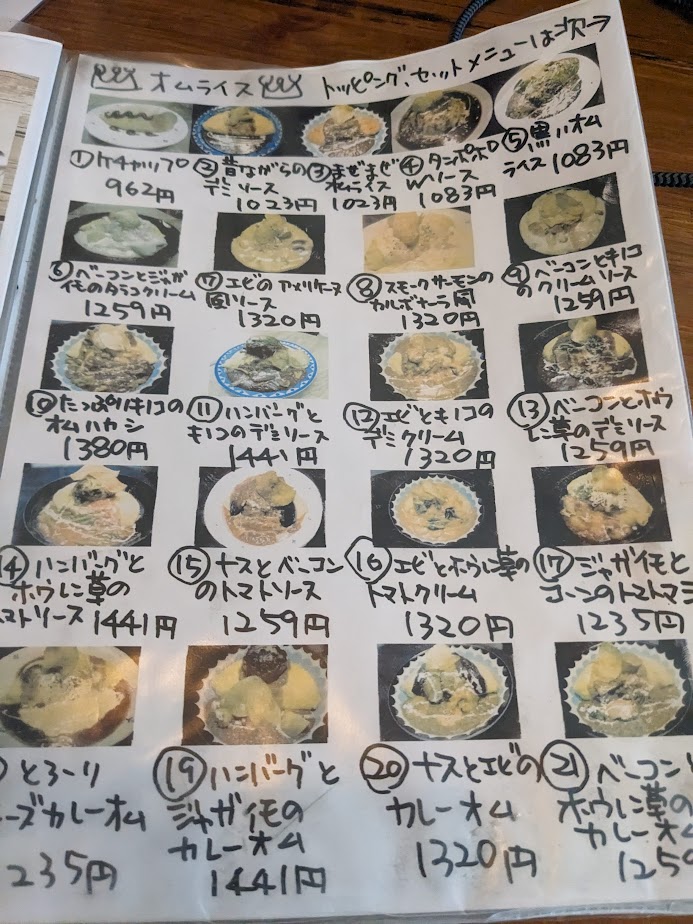 オムライス トッピング、セットメニューは次→
①ケチャップ
962円
②昔ながらの
デミソース
1023円
③まぜまぜ
オムライス
1023円
④タンポポ
Wソース
1083円
⑤黒いオム
ライス 1083円
⑥ベーコンとジャガ
イモのタラコクリーム
1259円
⑦エビのアメリケーヌ
風ソース
1320円
⑧スモークサーモンの
カルボナーラ風
1320円
⑨ベーコンとキノコ
のクリームソース
1259円
⑩たっぷりキノコの
オムハヤシ
1380円
⑪ハンバーグと
キノコのデミソース
1441円
⑫エビとキノコの
デミクリーム
1320円
⑬ベーコンとホウ
レン草のデミソース
1259円
⑭ハンバーグと
ホウレン草の
トマトソース 1441円
⑮ナスとベーコン
のトマトソース
1259円
⑯エビとホウレン草の
トマトクリーム
1320円
⑰ジャガイモと
コーンのトマトマヨ
1235円
とろーり
ーズカレーオム
235円
⑲ハンバーグと
ジャガイモの
カレーオム
1441円
⑳ナスとエビの
カレーオム
1320円
㉑ベーコン
ホウレン草の
カレーオム
1259